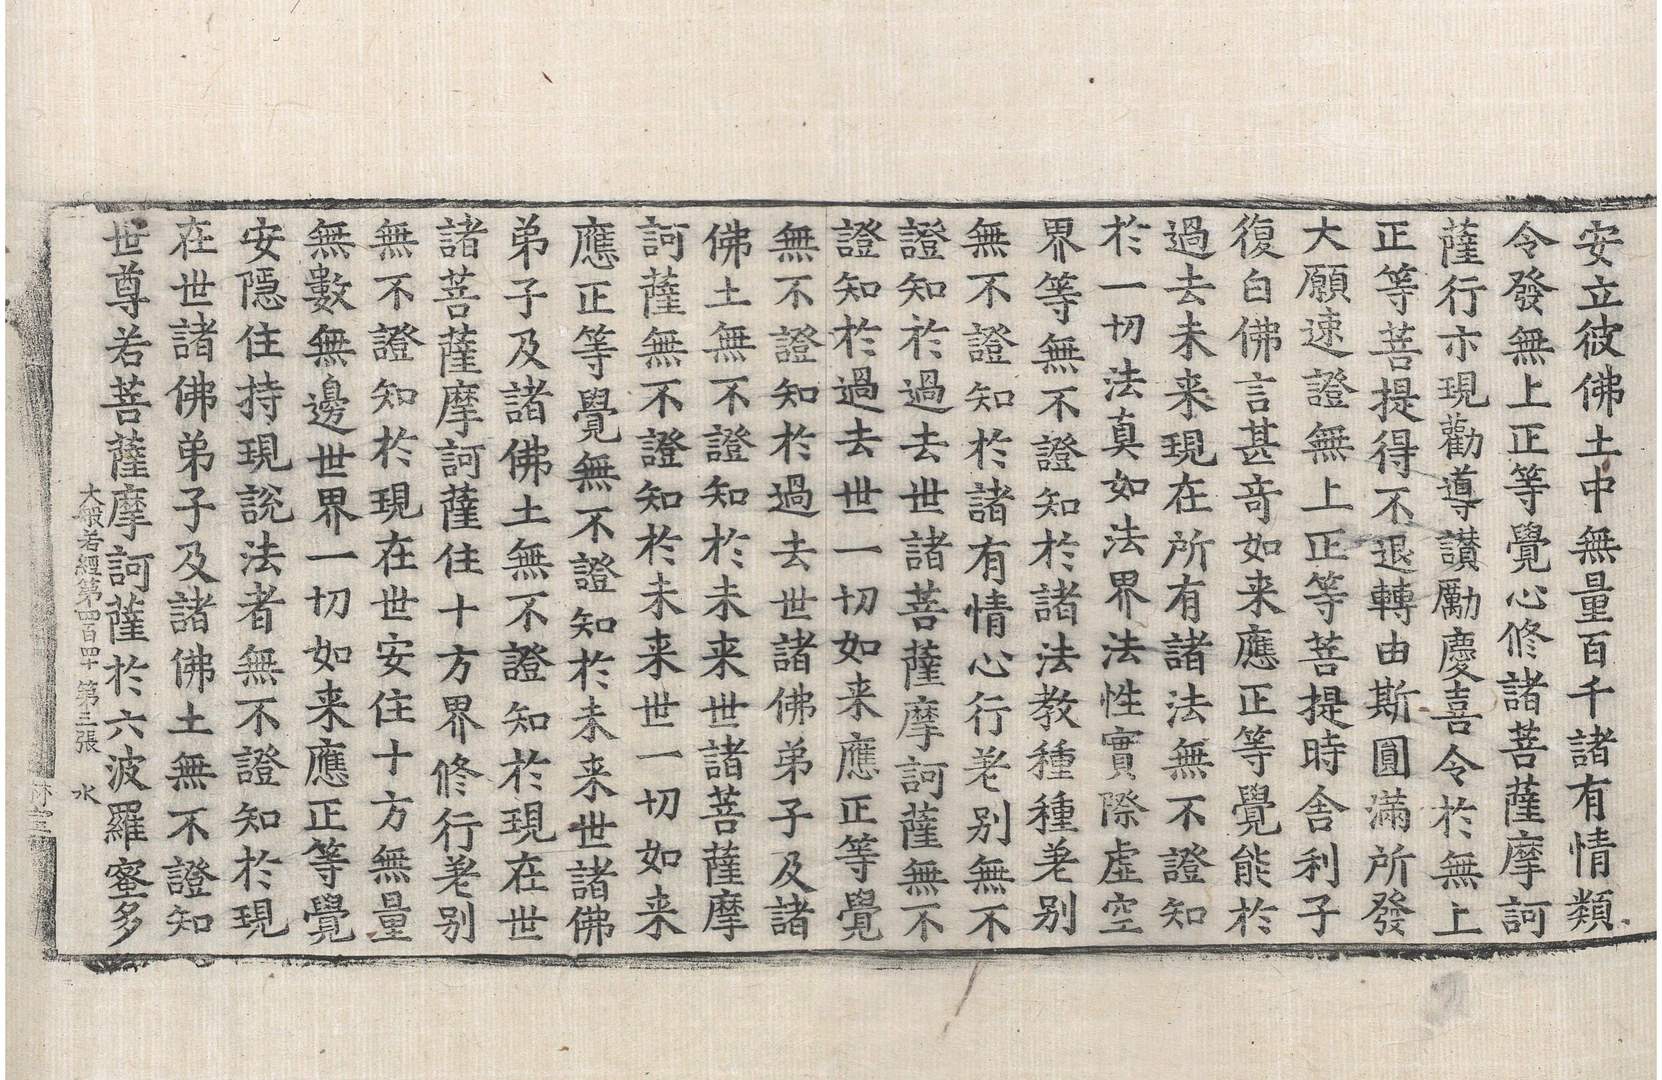 安立彼佛土中無量百千諸有情類
令發無上正等覺心修諸菩薩摩訶
薩行亦現勸導讃勵慶喜令於無上
正等菩提得不退轉由斯圓滿所發
大願速證無上正等菩提時舍利子
復白佛言甚奇如来應正等覺能於
過去未来現在所有諸法無不證知
於一切法真如法界法性實際虛空
界等無不證知於諸法教種種差别
無不證知於諸有情心行差别無不
證知於過去世諸菩薩摩訶薩無不
證知於過去世一切如来應正等覺
無不證知於過去世諸佛弟子及諸
佛土無不證知於未来世諸菩薩摩
訶薩無不證知於未来世一切如来
應正等覺無不證知於未来世諸佛
弟子及諸佛土無不證知於現在世
諸菩薩摩訶薩住十方界修行差别
無不證知於現在世安住十方無量
無數無邊世界一切如来應正等覺
安隱住持現說法者無不證知於現
在世諸佛弟子及諸佛土無不證知
世尊若菩薩摩訶薩於六波羅蜜多
大般若經第四百四十 第三張 水